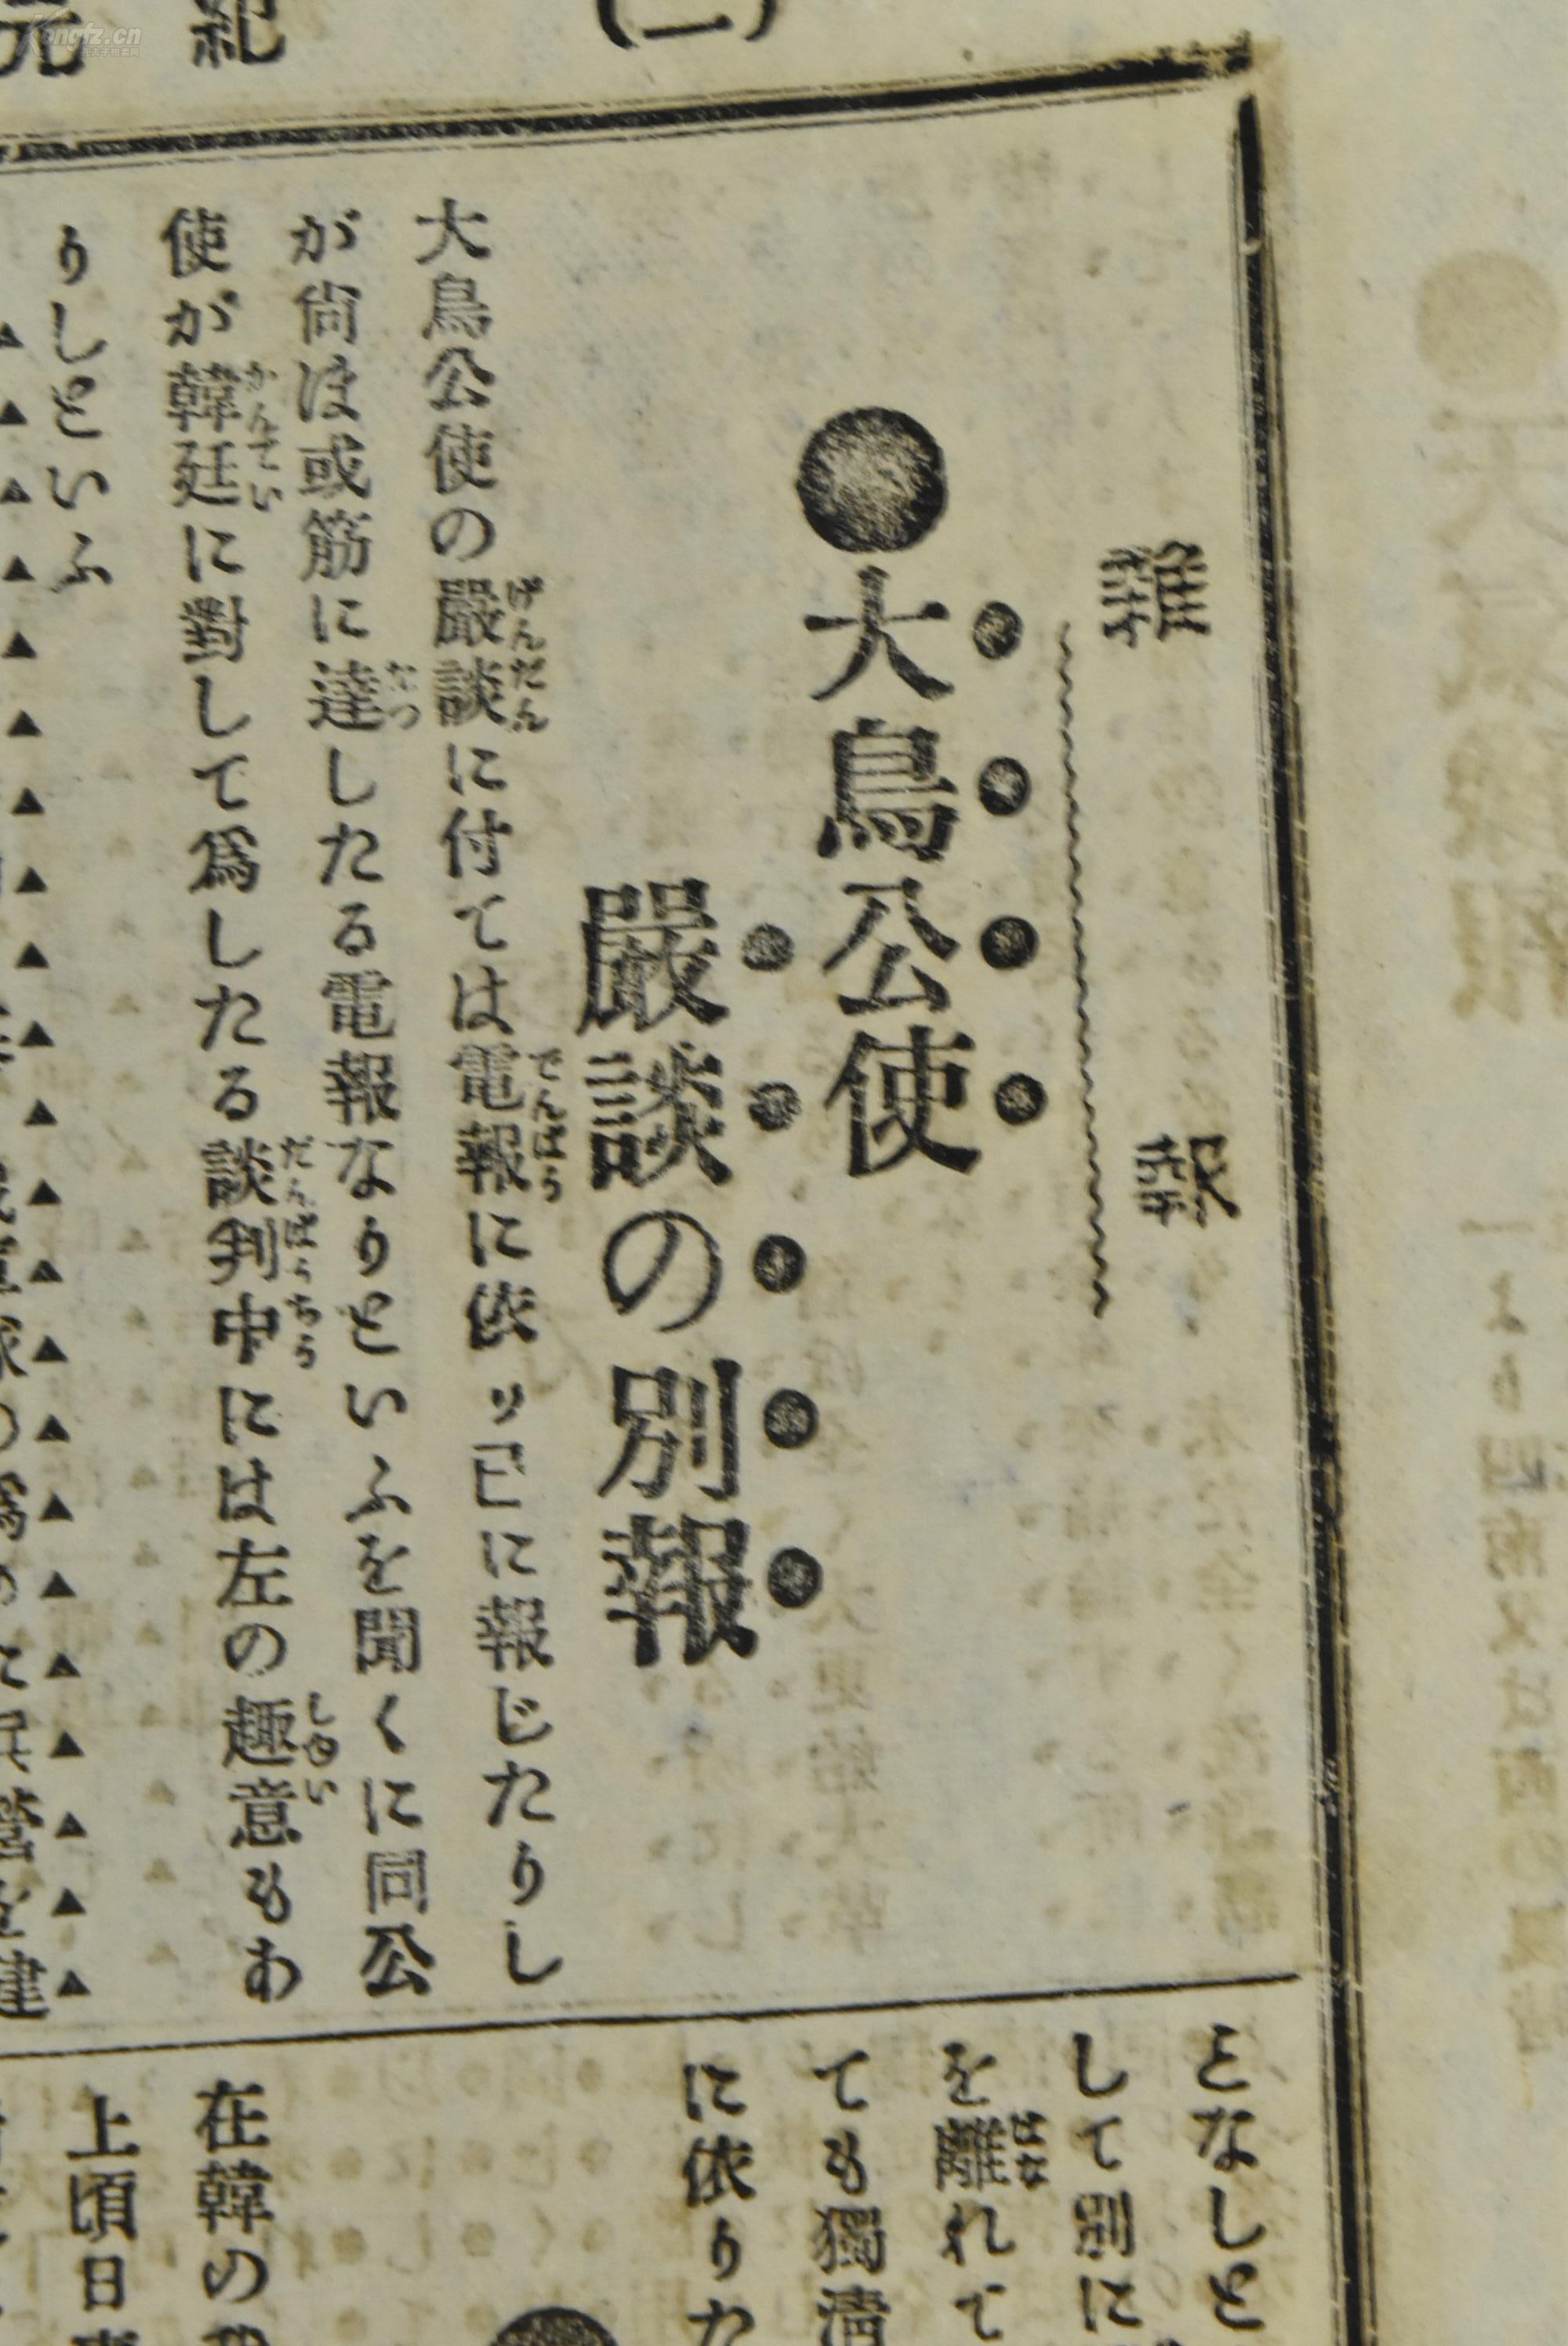 (一)
紀
元
雜報
●大鳥公使
嚴談の別報
大鳥公使の嚴談に付ては電報に依り已に報じたりし
が尙ほ或筋に達したる電報なりといふを聞くに同公
使が韓廷に對して爲したる談判中には左の趣意もあ
りしといふ
となしと
して別に
を離れて
ても獨淸
に依りた
在韓の
上頃日